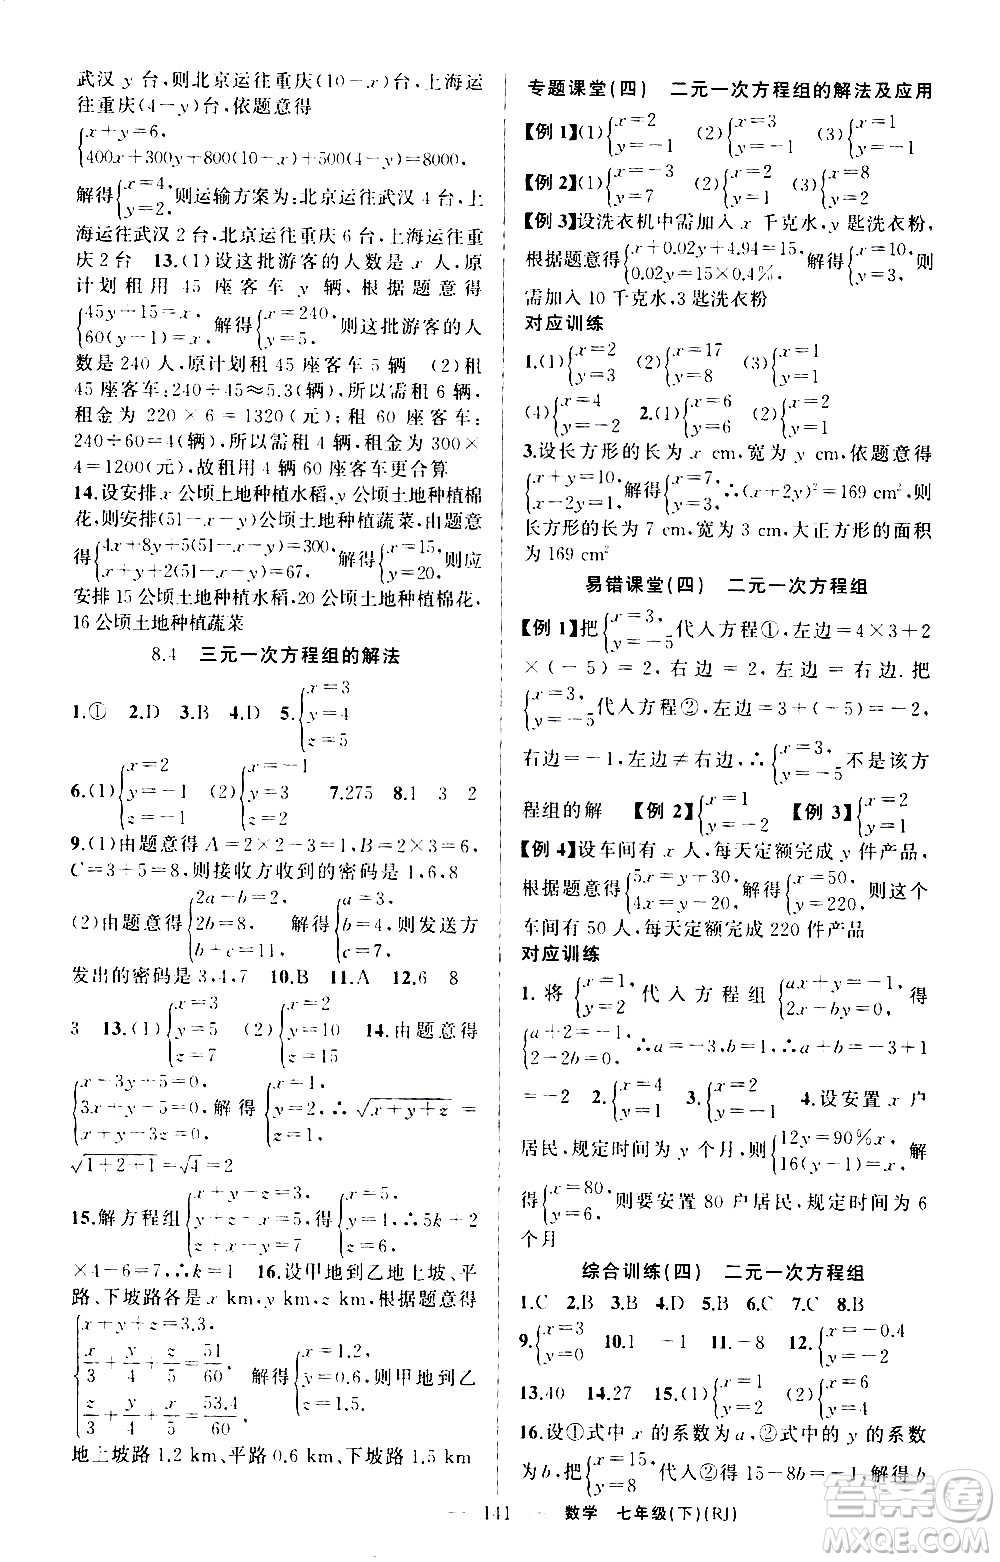 武汉 y 台,则北京运往重庆(10-x)台,上海运
往重庆(4-y)台,依题意得
{x+y=6,
400x+300y+800(10-x)+500(4-y)=8000,
解得{x=4, y=2.则运输方案为:北京运往武汉 4 台,上
海运往武汉 2 台,北京运往重庆 6 台,上海运往重
庆 2 台 13.(1)设这批游客的人数是 x 人,原
计划租用 45 座客车 y 辆、根据题意得
{45y+15=x, 60(y-1)=x, 解得{x=240, y=5. 则这批游客的人
数是 240 人,原计划租 45 座客车 5 辆 (2)租
45 座客车:240÷45≈5.3(辆),所以需租 6 辆,
租金为 220×6=1320(元);租 60 座客车:
240÷60=4(辆),所以需租 4 辆,租金为 300×
4=1200(元),故租用 4 辆 60 座客车更合算
14.设安排 x 公顷土地种植水稻,y 公顷土地种植棉
花,则安排(51-x-y)公顷土地种植蔬菜,由题意
得{4x+8y+5(51-x-y)=300, x+y+2(51-x-y)=67, 解得{x=15, y=20. 则应
安排 15 公顷土地种植水稻,20 公顷土地种植棉花,
16 公顷土地种植蔬菜
8.4 三元一次方程组的解法
1.① 2.D 3.B 4.D 5.{x=3 y=4 z=5
6.(1){x=2 y=-1 z=-1 (2){x=-1 y=3 z=2 7.275 8.1 3 2
9.(1)由题意得 A=2×2-3=1,B=2×3=6,
C=3+5=8,则接收方收到的密码是 1,6,8
(2)由题意得{2a-b=2, 2b=8, b+c=11, 解得{a=3, b=4, c=7, 则发送方
发出的密码是 3,4,7 10.B 11.A 12.6 8
3 13.(1){x=3 y=5 z=7 (2){x=6 y=10 z=15 14.由题意得
{x-3y+5=0, 3x-y-5=0, x+y-3z=0, 解得{x=2, y=1, z=1. ∴√x+y+z=
√1+2+1=√4=2
15.解方程组{x+y-z=3, y+z-x=5, z+x-y=7, 得{x=5, y=4, z=6, ∴5k+2
×4-6=7,∴k=1 16.设甲地到乙地上坡、平
路、下坡路各是 x km,y km,z km,根据题意得
{x+y+z=3.3, x/3+y/4+z/5=51/60, z/3+y/4+x/5=53.4/60 解得{x=1.2, y=0.6, z=1.5. 则甲地到乙
地上坡路 1.2 km,平路 0.6 km,下坡路 1.5 km
专题课堂(四) 二元一次方程组的解法及应用
【例 1】(1){x=2 y=-1 (2){x=3 y=-1 (3){x=1 y=-1
【例 2】(1){x=5 y=7 (2){x=1 y=1 (3){x=8 y=2
【例 3】设洗衣机中需加入 x 千克水,y 匙洗衣粉,
根据题意得{x+0.02y+4.94=15, 0.02y=15×0.4%, 解得{x=10, y=3. 则
需加入 10 千克水,3 匙洗衣粉
对应训练
1.(1){x=2 y=3 (2){x=17 y=8 (3){x=1 y=1
(4){x=4 y=1 2.(1){x=6 y=4 (2){x=2 y=1
3.设长方形的长为 x cm,宽为 y cm,依题意得
{3x=7y, 2y-x=1, 解得{x=7, y=3. ∴(x+2y)²=169 cm²,则
长方形的长为 7 cm,宽为 3 cm,大正方形的面积
为 169 cm²
易错课堂(四) 二元一次方程组
【例 1】把{x=3, y=-5代入方程①,左边=4×3+2
×(-5)=2,右边=2,左边=右边.把
{x=3, y=-5代入方程②,左边=3+(-5)=-2,
右边=1,左边≠右边,∴{x=3, y=-5不是该方
程组的解 【例 2】{x=1 y=-2 【例 3】{x=2 y=1
【例 4】设车间有 x 人,每天定额完成 y 件产品,
根据题意得{5x=y+30, 4x=y-20, 解得{x=50, y=220, 则这个
车间有 50 人,每天定额完成 220 件产品
对应训练
1.将{x=1, y=2代入方程组{ax+y=-1, 2x-by=0 得
{a+2=-1, 2-2b=0, ∴a=-3,b=1,∴a+b=-3+1
=-2 2.{x=4 y=1 3.{x=2 y=1 4.设安置 x 户
居民,规定时间为 y 个月,则{12y=90%x, 16(y-1)=x, 解
得{x=80, y=6. 则要安置 80 户居民,规定时间为 6
个月
综合训练(四) 二元一次方程组
1.C 2.B 3.B 4.D 5.D 6.D 7.C 8.B
9.{x=3 y=0 10.1 -1 11.-8 12.{x=-0.4 y=1
13.40 14.27 15.(1){x=2 y=-1 (2){x=6 y=4
16.设①式中 x 的系数为 a,②式中的 y 的系数
为 b,把{x=15, y=8代入②得 15-8b=-1,解得 b
141
数学 七年级(下)(RJ)
答案圈
MXQE.COM